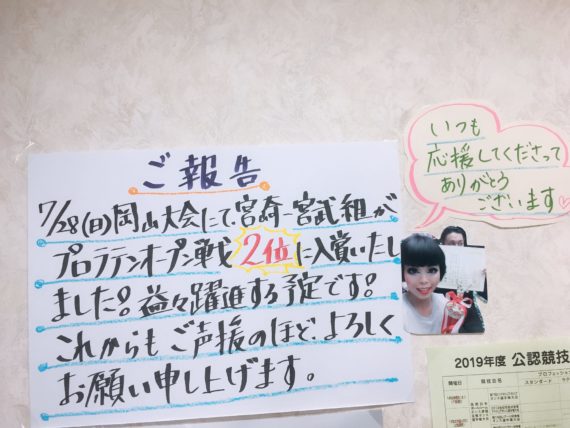 ご報告
7/28(日)岡山大会にて、宮崎-宮武組が
プロラテンオープン戦2位に入賞いたし
ました!益々躍進する予定です!
これからもご声援のほど、よろしく
お願い申し上げます。
いつも
応援してくださって
ありがとう
ございます♡
2019年度 公認競技
プロフェッショ
開催日 競技会名 スタンダード ラテ